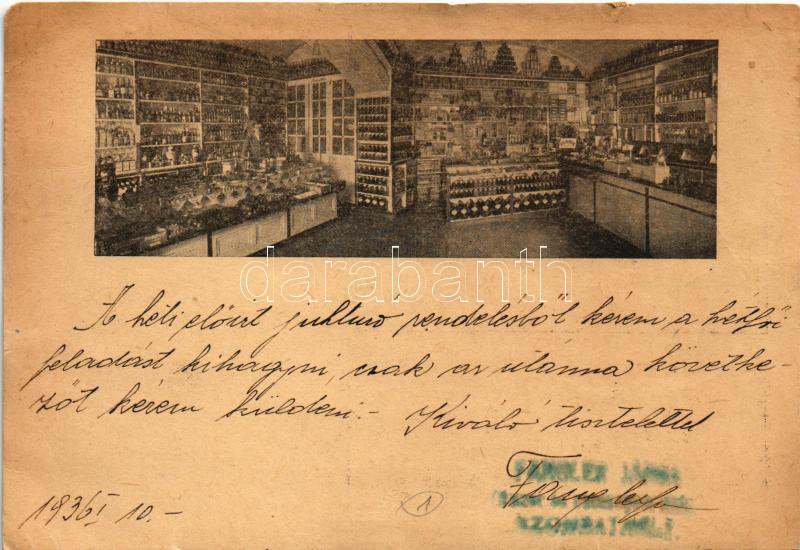 darabanth
A heti előirt juhturó rendelésből kérem a hétfői
feladást kihagyni, csak az utánna követke-
zőt kérem küldeni.- Kiváló tisztelettel
JÁNOS
SZOMBATHELY.
1936 I 10.-
1